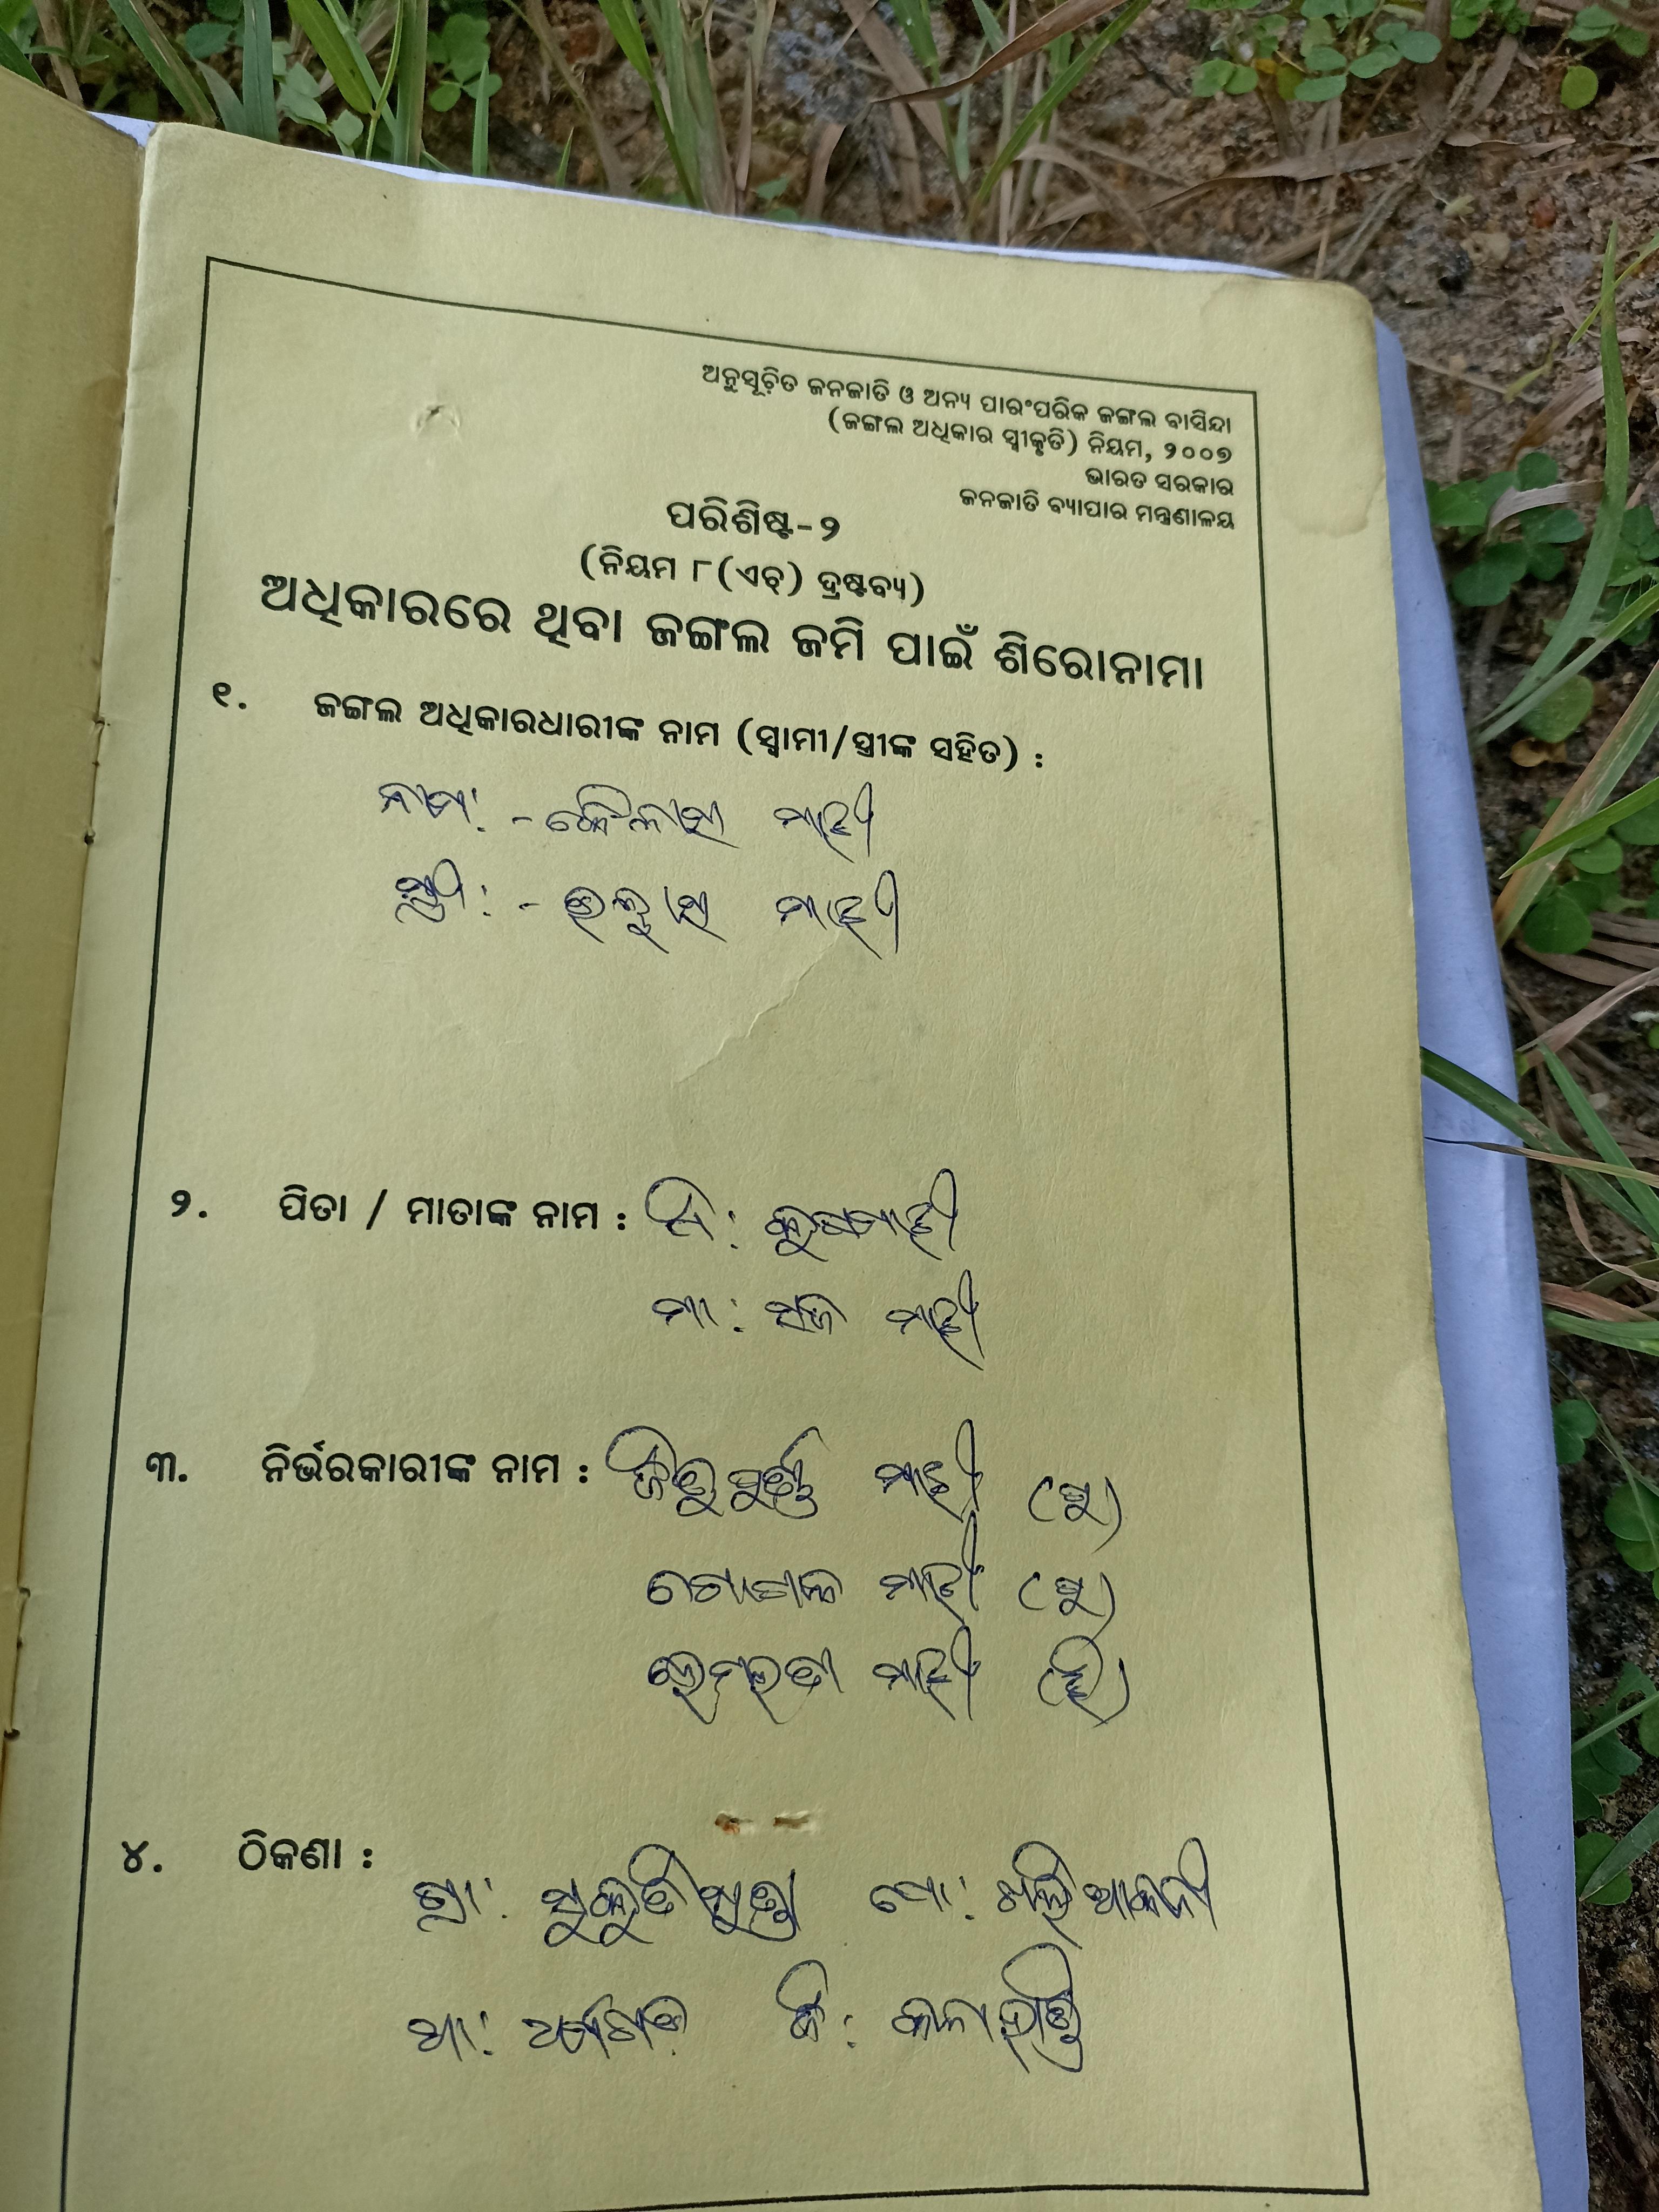 ଅନୁସୂଚିତ ଜନଜାତି ଓ ଅନ୍ୟ ପାରଂପରିକ ଜଙ୍ଗଲ ବାସିନ୍ଦା
(ଜଙ୍ଗଲ ଅଧିକାର ସ୍ୱୀକୃତି) ନିୟମ, ୨୦୦୭
ଭାରତ ସରକାର
ଜନଜାତି ବ୍ୟାପାର ମନ୍ତ୍ରଣାଳୟ
ପରିଶିଷ୍ଟ-୨
(ନିୟମ ୮(ଏଚ୍) ଦ୍ରଷ୍ଟବ୍ୟ)
ଅଧିକାରରେ ଥିବା ଜଙ୍ଗଲ ଜମି ପାଇଁ ଶିରୋନାମା
୧. ଜଙ୍ଗଲ ଅଧିକାରଧାରୀଙ୍କ ନାମ (ସ୍ୱାମୀ/ସ୍ତ୍ରୀଙ୍କ ସହିତ) :
ନାମ: - ମାଝୀ
ସ୍ତ୍ରୀ: - ମାଝୀ
୨. ପିତା / ମାତାଙ୍କ ନାମ : ପି:
ମା: ମାଝୀ
୩. ନିର୍ଭରକାରୀଙ୍କ ନାମ : ମାଝୀ (ପୁ)
ଗୋପାଳ ମାଝୀ (ପୁ)
ହେମଲତା ମାଝୀ (ଝି)
୪. ଠିକଣା :
ଗ୍ରା: ପୋ:
ଥା: ଜି: କଳାହାଣ୍ଡି